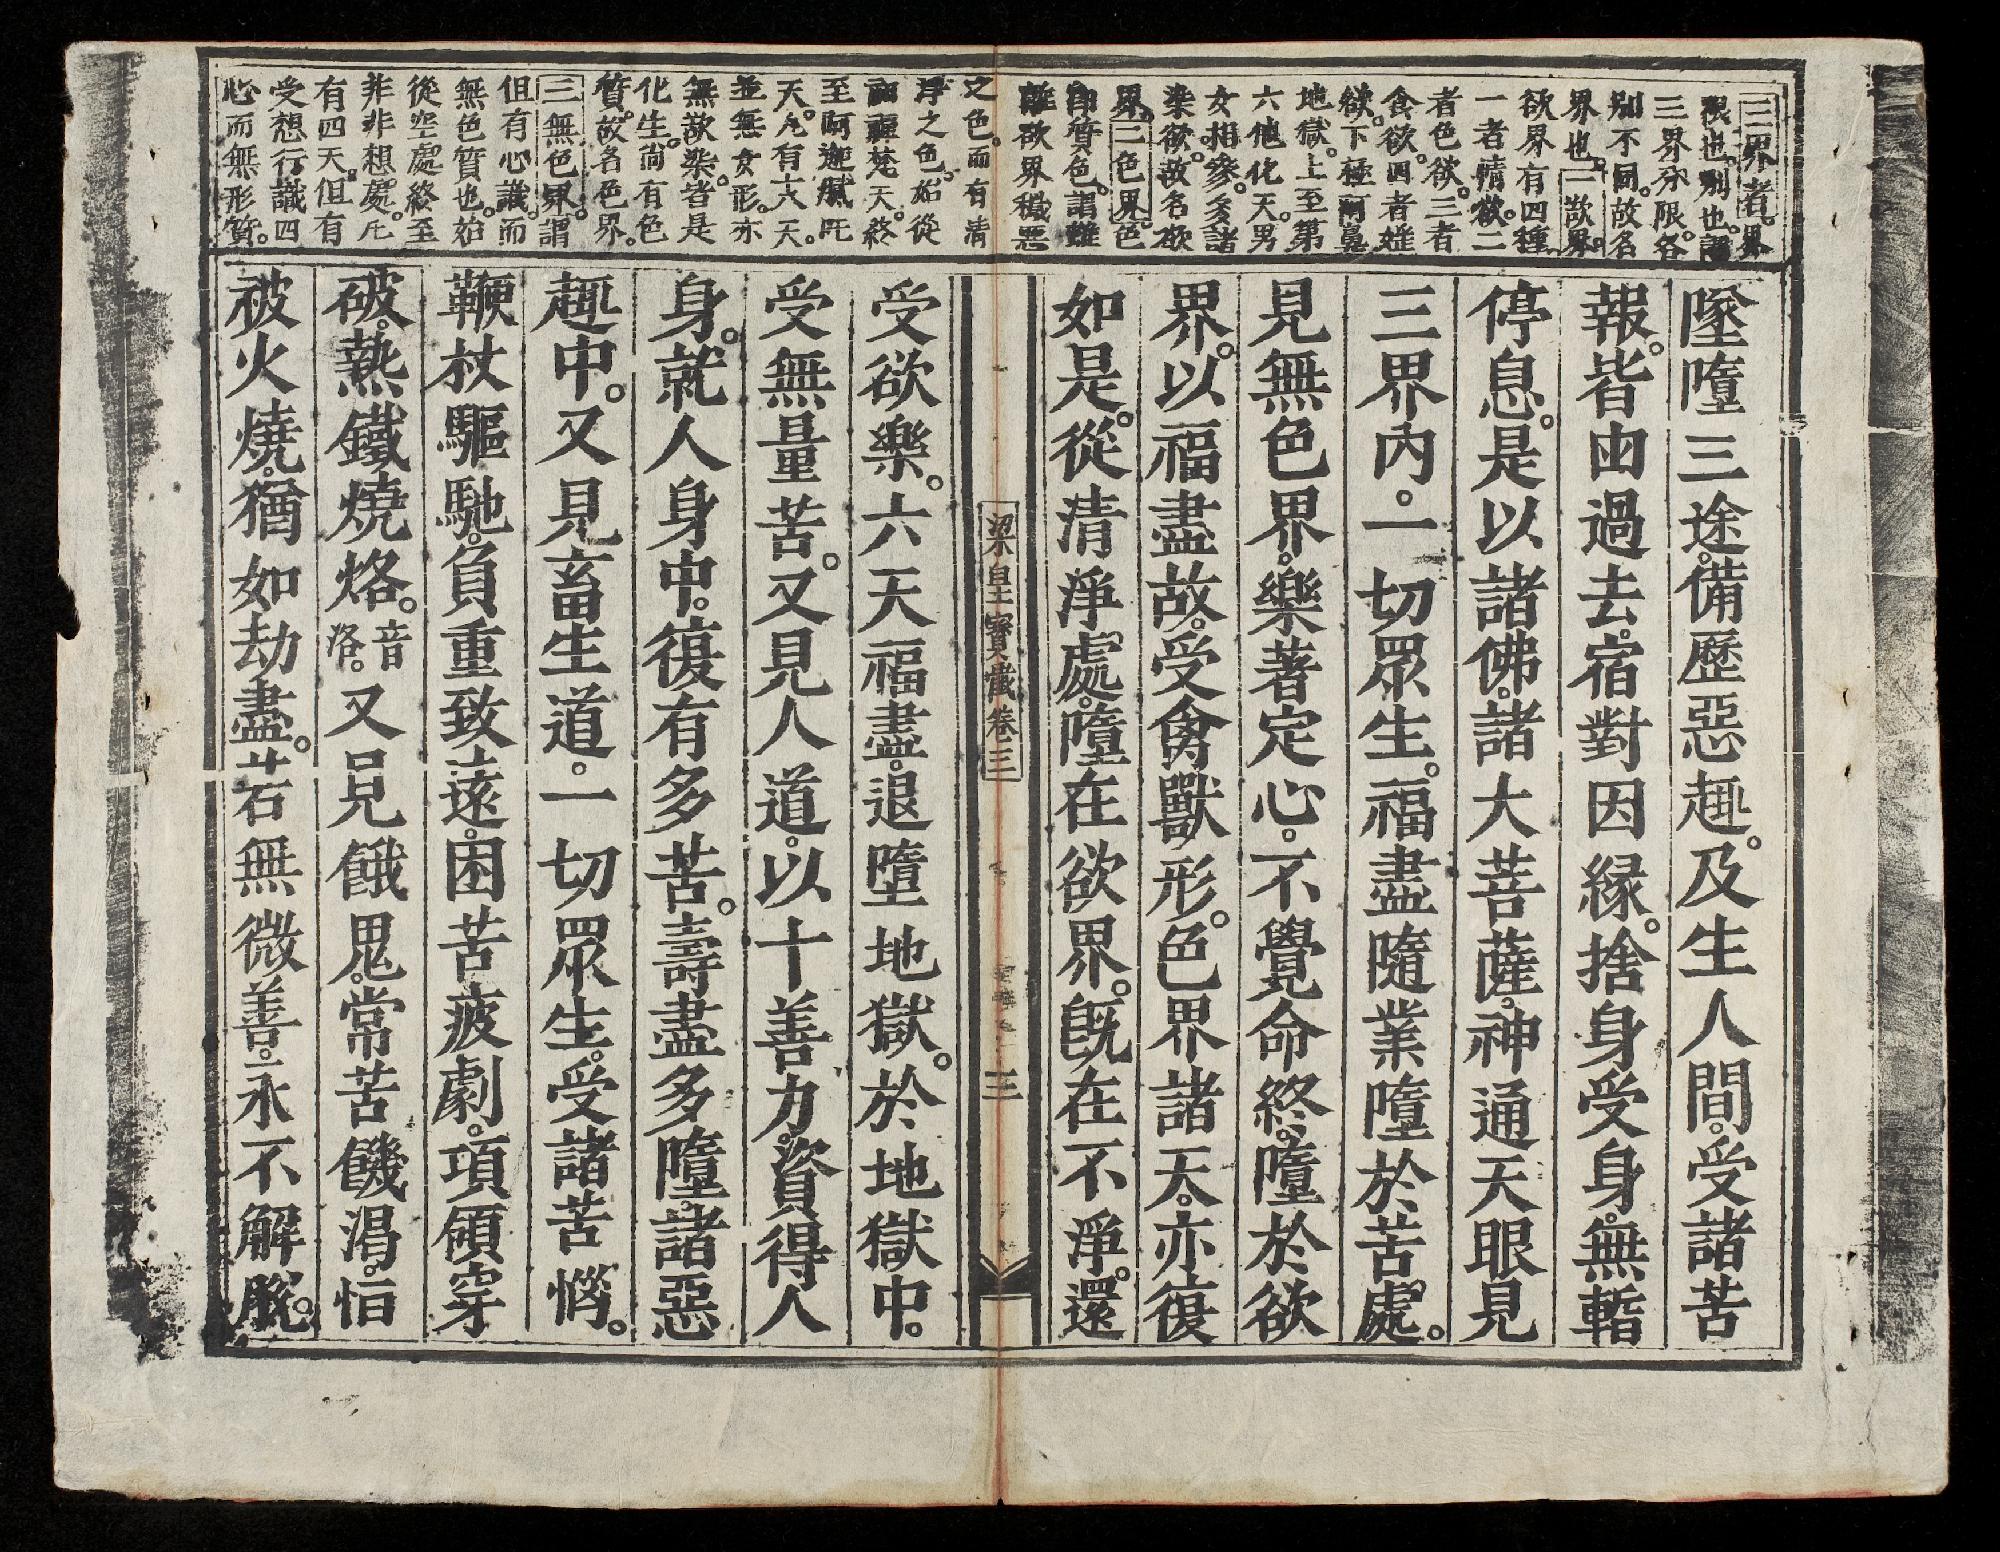 三界者。界
限也。別也。謂
三界分限。各
別不同。故名
界也。一欲界。
欲界有四種
一者情欲。二
者色欲。三者
食欲。四者婬
欲。下極阿鼻
地獄。上至第
六他化天。男
女相參。多諸
染欲。故名欲
界。二色界。色
即質色。謂雖
離欲界穢惡
之色。而有清
淨之色。始從
初禪梵天。終
至阿迦膩吒
天。凡有十八天。
並無女形。亦
無欲染。皆是
化生。尚有色
質。故名色界。
三無色界。謂
但有心識。而
無色質也。始
從空處。終至
非非想處。凡
有四天。但有
受想行識四
心而無形質。
墜墮三途。備歷惡趣。及生人間。受諸苦
報。皆由過去。宿對因緣。捨身受身。無暫
停息。是以諸佛。諸大菩薩。神通天眼見
三界內。一切眾生。福盡隨業墮於苦處。
見無色界。樂著定心。不覺命終。墮於欲
界。以福盡故。受禽獸形。色界諸天。亦復
如是。從清淨處。墮在欲界。既在不淨。還
梁皇寶懺卷三
三
受欲樂。六天福盡。退墮地獄。於地獄中。
受無量苦。又見人道。以十善力。資得人
身。就人身中。復有多苦。壽盡多墮。諸惡
趣中。又見畜生道。一切眾生。受諸苦惱。
鞭杖驅馳。負重致遠。困苦疲劇。項領穿
破。熱鐵燒烙。音洛。又見餓鬼。常苦饑渴。恒
被火燒。猶如劫盡。若無微善。永不解脫。